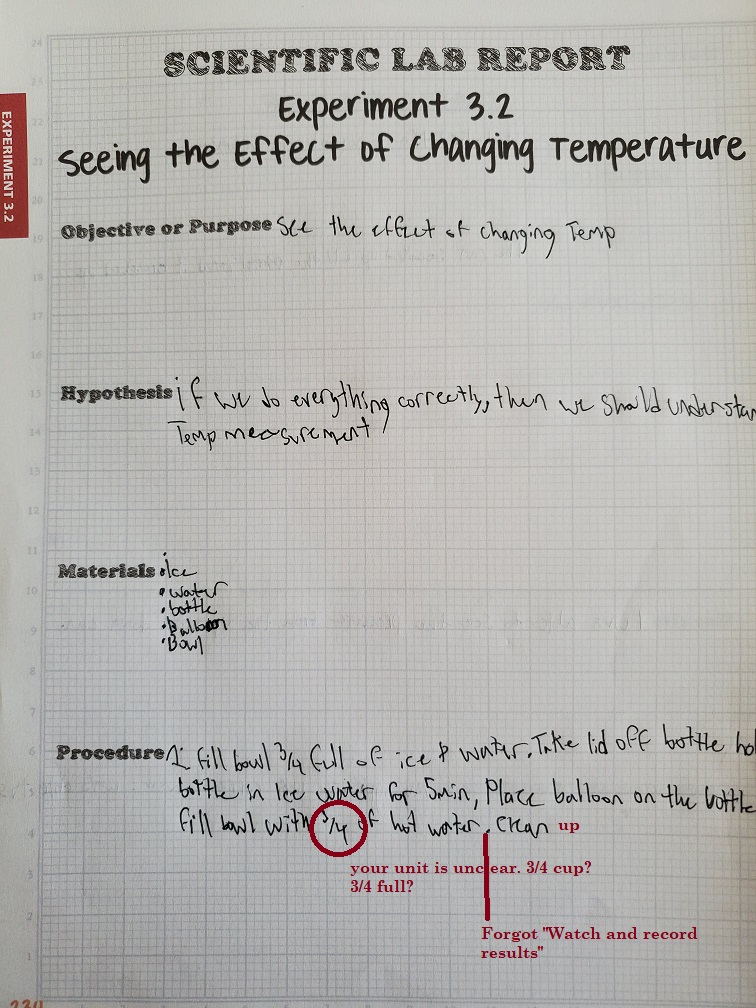 SCIENTIFIC LAB REPORT
Experiment 3.2
Seeing the Effect of Changing Temperature
EXPERIMENT 3.2
Objective or Purpose See the effect of changing Temp
Hypothesis if we do everything correctly, then we should understan
Temp measurement
Materials • Ice
• water
• bottle
• Balloon
• Bowl
Procedure 1: fill bowl 3/4 full of ice & water. Take lid off bottle ho
bottle in Ice water for 5min, Place balloon on the bottle
fill bowl with 3/4 of hot water. Clean up
your unit is unclear. 3/4 cup?
3/4 full?
Forgot "Watch and record
results"
24
23
22
21
20
19
18
17
16
15
14
13
12
11
10
9
8
7
6
5
4
3
2
1